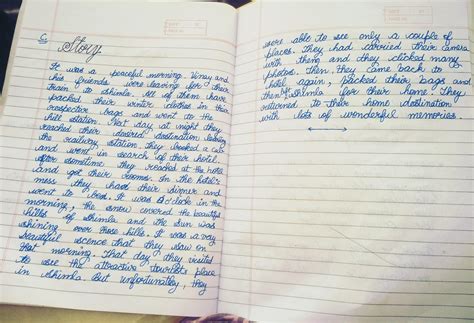 6.
Story
It was a peaceful morning. Vinay and
his friends were leaving for their
train to shimla. All of them have
packed their winter clothes in their
respector bags and went to the
hill station. Next day at night they
reached their desired destination leaving
the railway station. They booked a cab
and went in search of their hotel.
After sometime they reached at the hotel
and got their rooms. In the hotel's
mess they had their dinner and
went to bed. It was 8 o'clock in the
morning, the snow covered the beautiful
hills of shimla and the sun was
shining over those hills. It was a very
beautiful scence that they saw on
that morning. That day they visited
to see the attractive tourists place
in shimla. But unfortunatley, they
were able to see only a couple of
places. They had carried their camera
with them and they clicked many
photos. Then they came back to
hotel again, packed their bags and
then left shimla for their home. They
returned to their home destination
with lots of wonderful memories.